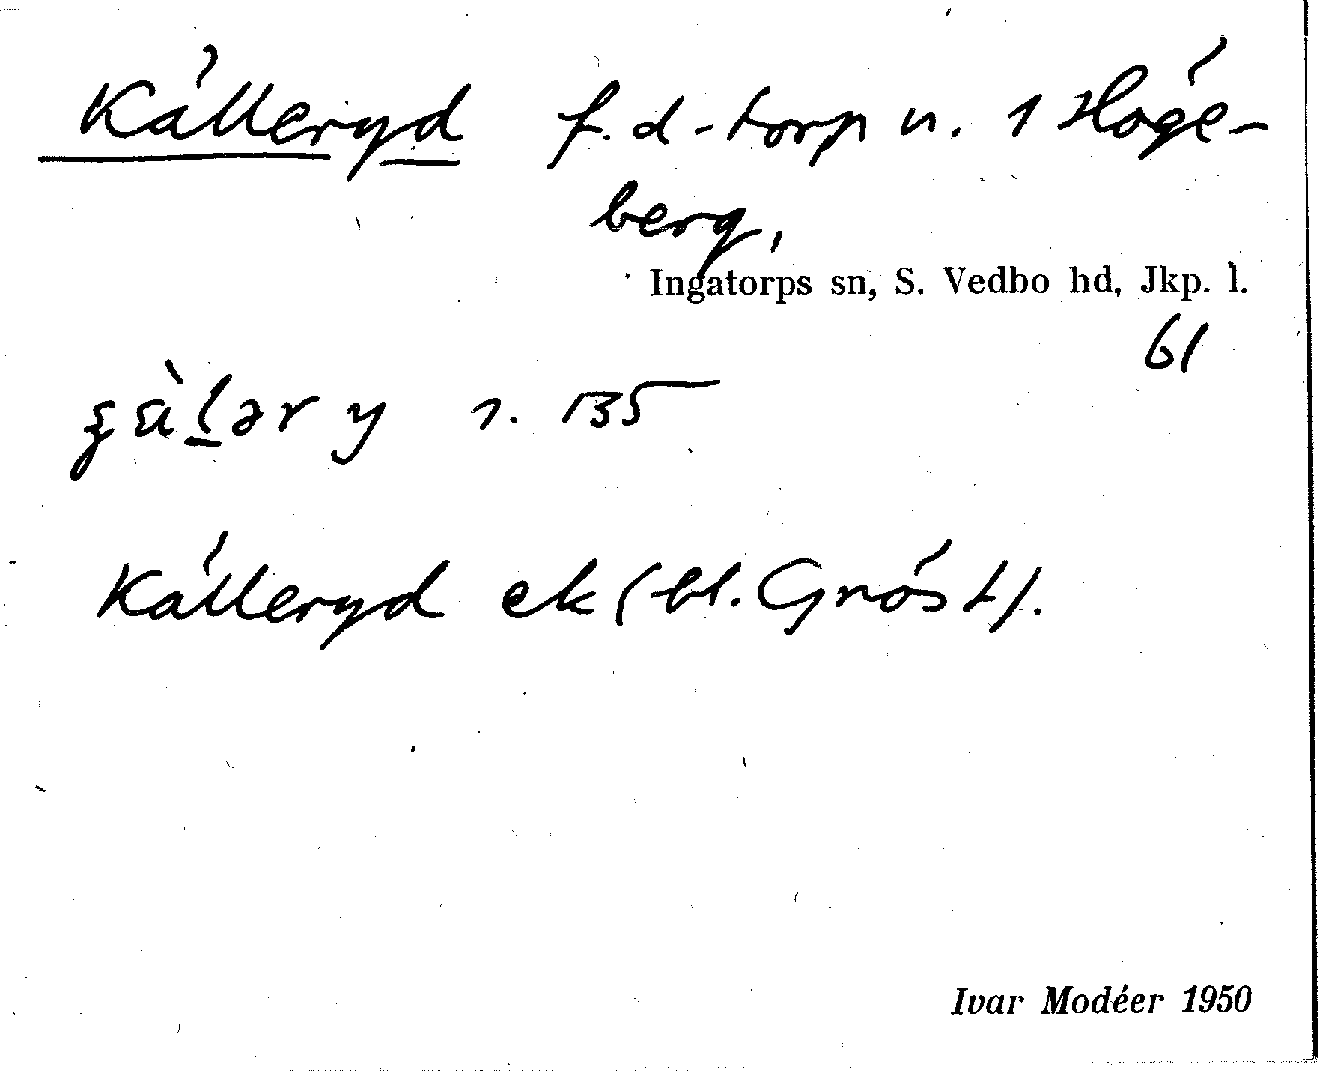 Källeryd f.d. torp u. 1 Höge-
berg,
Ingatorps sn, S. Vedbo hd, Jkp. l.
61
s. 135
Källeryd ek (bl. Gröst).
Ivar Modéer 1950